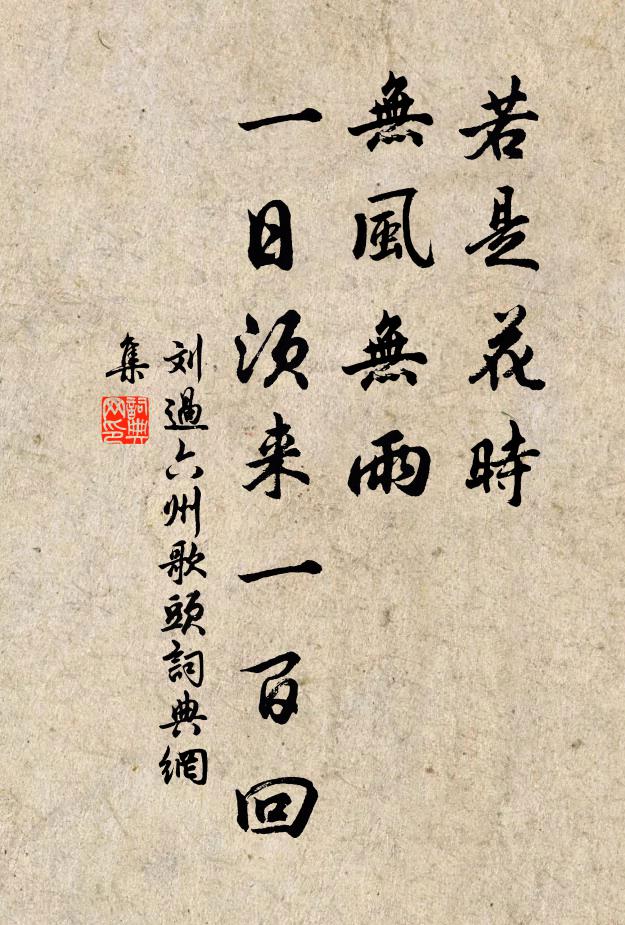 若是花時
無風無雨
一日须来一百回
刘過六州歌頭詞典網
集
詞典
网印